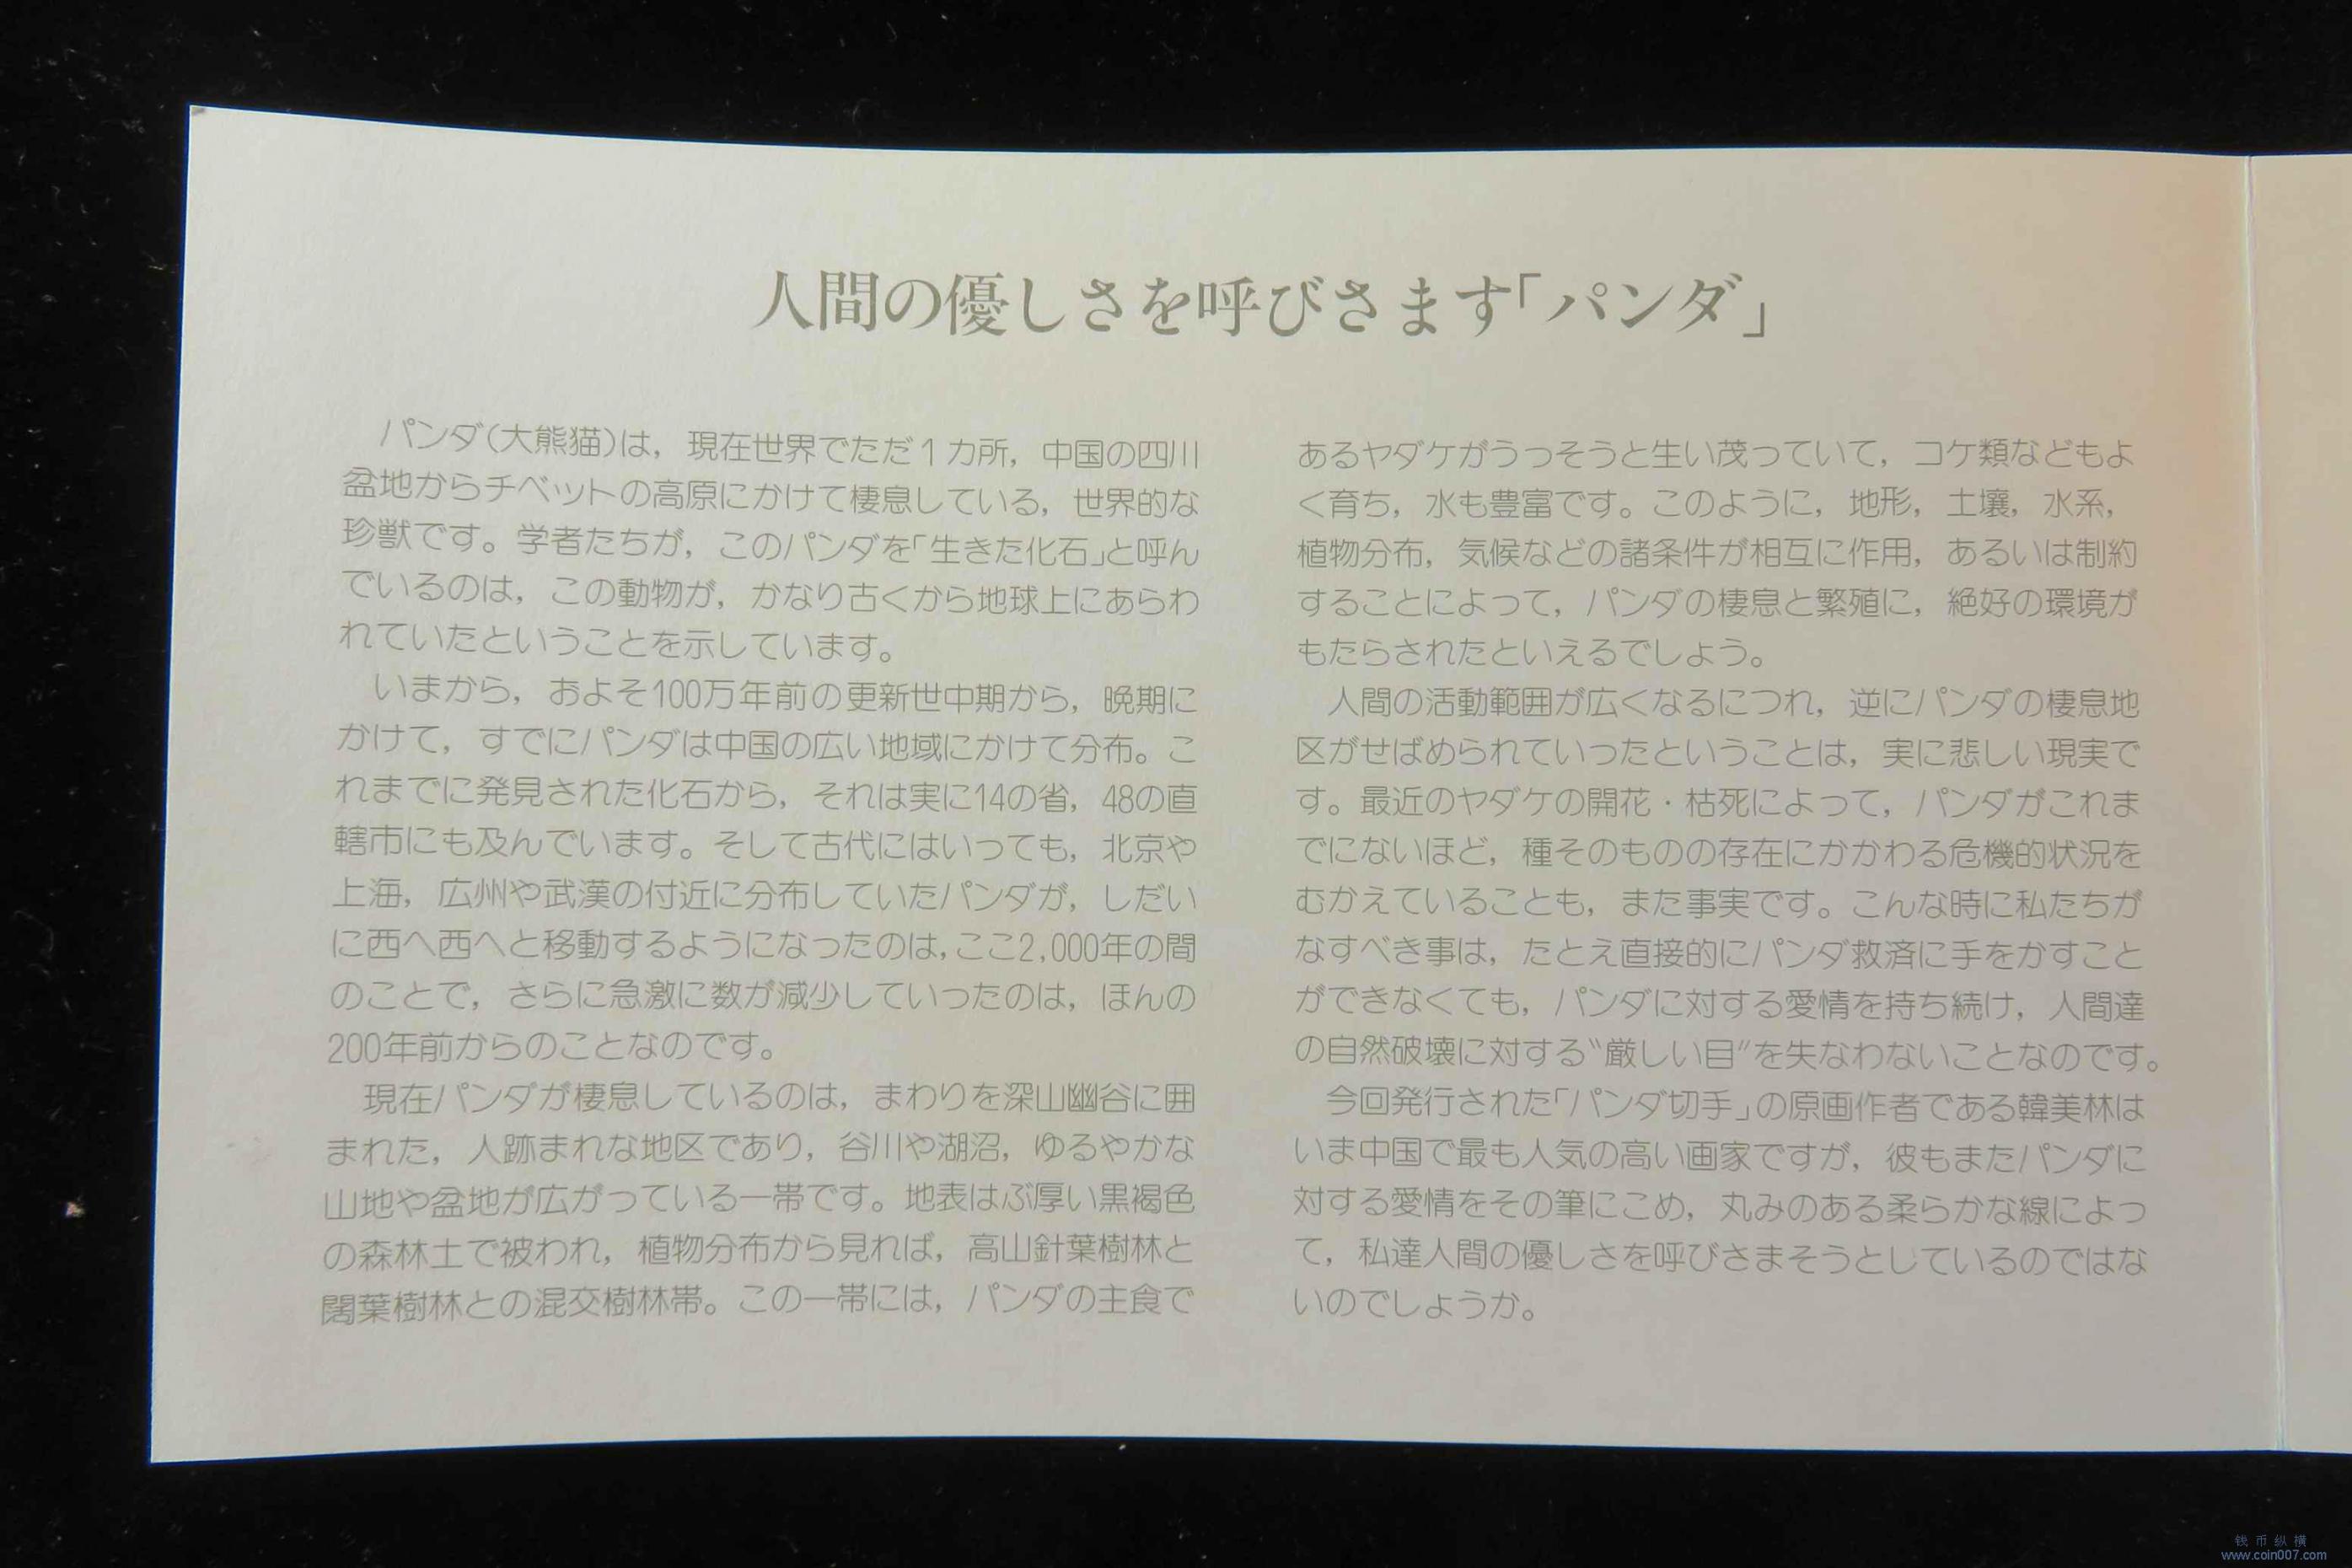 人間の優しさを呼びさます「パンダ」
パンダ(大熊猫)は，現在世界でただ1カ所，中国の四川
盆地からチベットの高原にかけて棲息している，世界的な
珍獣です。学者たちが，このパンダを「生きた化石」と呼ん
でいるのは，この動物が，かなり古くから地球上にあらわ
れていたということを示しています。
いまから，およそ100万年前の更新世中期から，晩期に
かけて，すでにパンダは中国の広い地域にかけて分布。こ
れまでに発見された化石から，それは実に14の省，48の直
轄市にも及んでいます。そして古代にはいっても，北京や
上海，広州や武漢の付近に分布していたパンダが，しだい
に西へ西へと移動するようになったのは，ここ2,000年の間
のことで，さらに急激に数が減少していったのは，ほんの
200年前からのことなのです。
現在パンダが棲息しているのは，まわりを深山幽谷に囲
まれた，人跡まれな地区であり，谷川や湖沼，ゆるやかな
山地や盆地が広がっている一帯です。地表はぶ厚い黒褐色
の森林土で被われ，植物分布から見れば，高山針葉樹林と
闊葉樹林との混交樹林帯。この一帯には，パンダの主食で
あるヤダケがうっそうと生い茂っていて，コケ類などもよ
く育ち，水も豊富です。このように，地形，土壌，水系，
植物分布，気候などの諸条件が相互に作用，あるいは制約
することによって，パンダの棲息と繁殖に，絶好の環境が
もたらされたといえるでしょう。
人間の活動範囲が広くなるにつれ，逆にパンダの棲息地
区がせばめられていったということは，実に悲しい現実で
す。最近のヤダケの開花・枯死によって，パンダがこれま
でにないほど，種そのものの存在にかかわる危機的状況を
むかえていることも，また事実です。こんな時に私たちが
なすべき事は，たとえ直接的にパンダ救済に手をかすこと
ができなくても，パンダに対する愛情を持ち続け，人間達
の自然破壊に対する〝厳しい目〞を失なわないことなのです。
今回発行された「パンダ切手」の原画作者である韓美林は
いま中国で最も人気の高い画家ですが，彼もまたパンダに
対する愛情をその筆にこめ，丸みのある柔らかな線によっ
て，私達人間の優しさを呼びさまそうとしているのではな
いのでしょうか。
钱币纵横
www.coin007.com